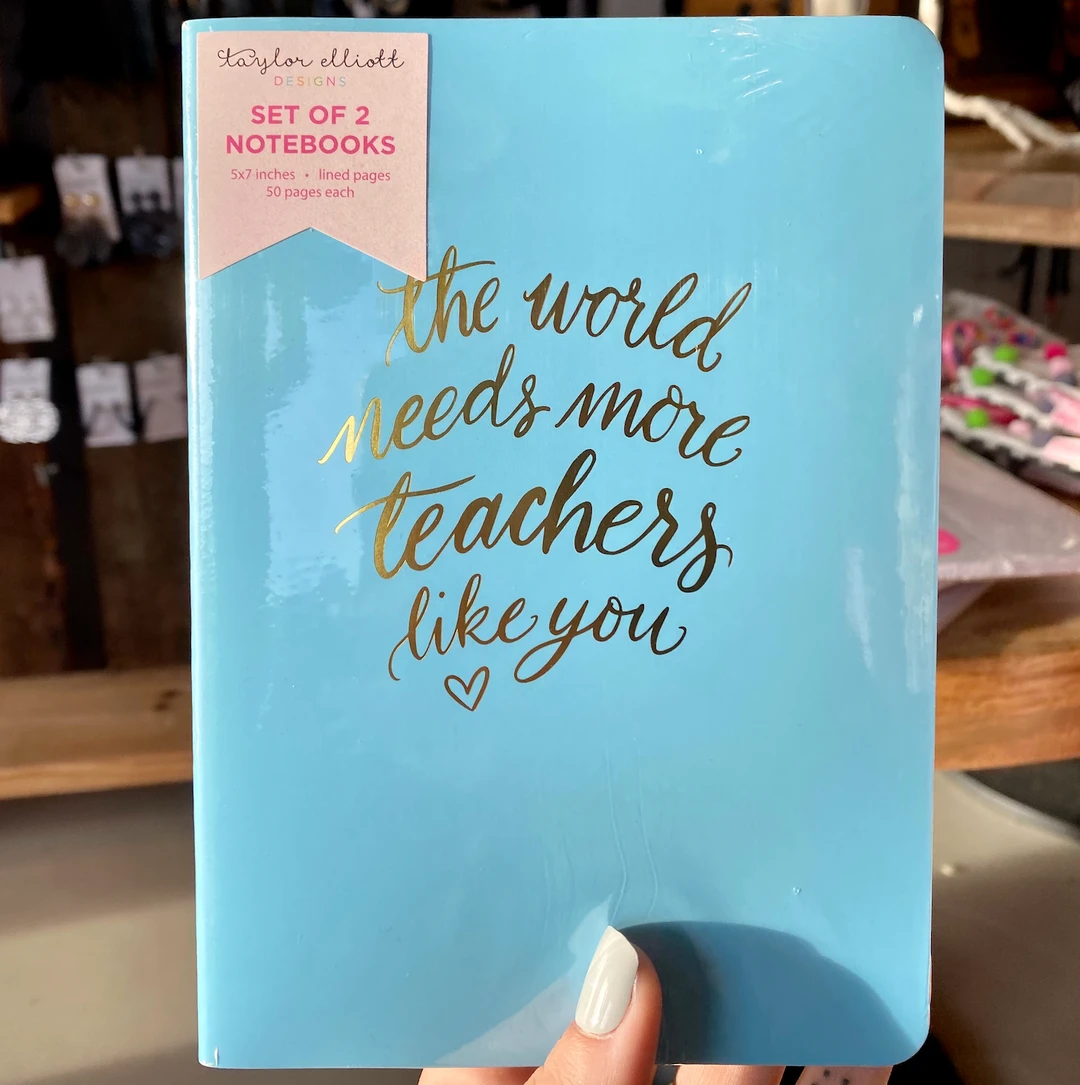 taylor elliott
DESIGNS
SET OF 2
NOTEBOOKS
5x7 inches • lined pages
50 pages each
the world
needs more
teachers
like you